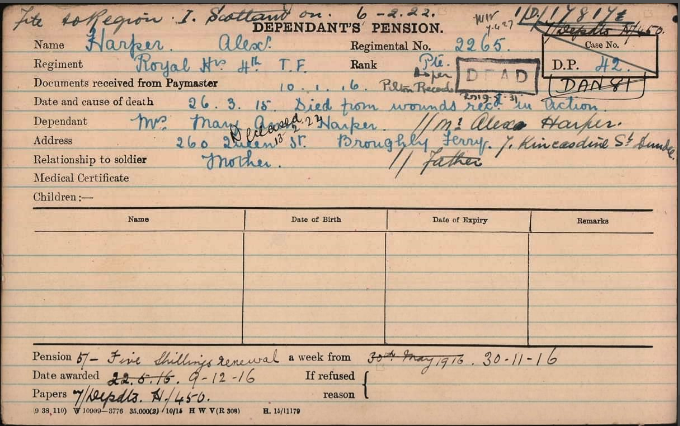 File to Region I. Scotland on 6-2.22.
1/D/11781/E
7/Depdts H/450.
DEPENDANT'S PENSION.
Name Harper. Alexr. Regimental No. 2265.
Case No.
D.P. 42.
Regiment Royal Hrs 4th T.F. Rank Pte.
DEAD
DAN81
Documents received from Paymaster 10.1.16. Records
Date and cause of death 26.3.15. Died from wounds recd in Action.
Dependant Mrs Mary Harper. // Mr Alexr Harper.
Deceased 13-2-22
Address 260 Queen St. Broughty Ferry. 7. Kincardine St Dundee.
Relationship to soldier Mother. // Father
Medical Certificate
Children:—
Name Date of Birth Date of Expiry Remarks
Pension 5/- Five Shillings renewal a week from 30th May 1916 30-11-16
Date awarded 22.5.16. 9-12-16 If refused {
Papers 7/Depdts. H/450. reason
(9 38,110) W 10909—3776 35,000(2) 10/15 H W V(R 308) H. 15/11179